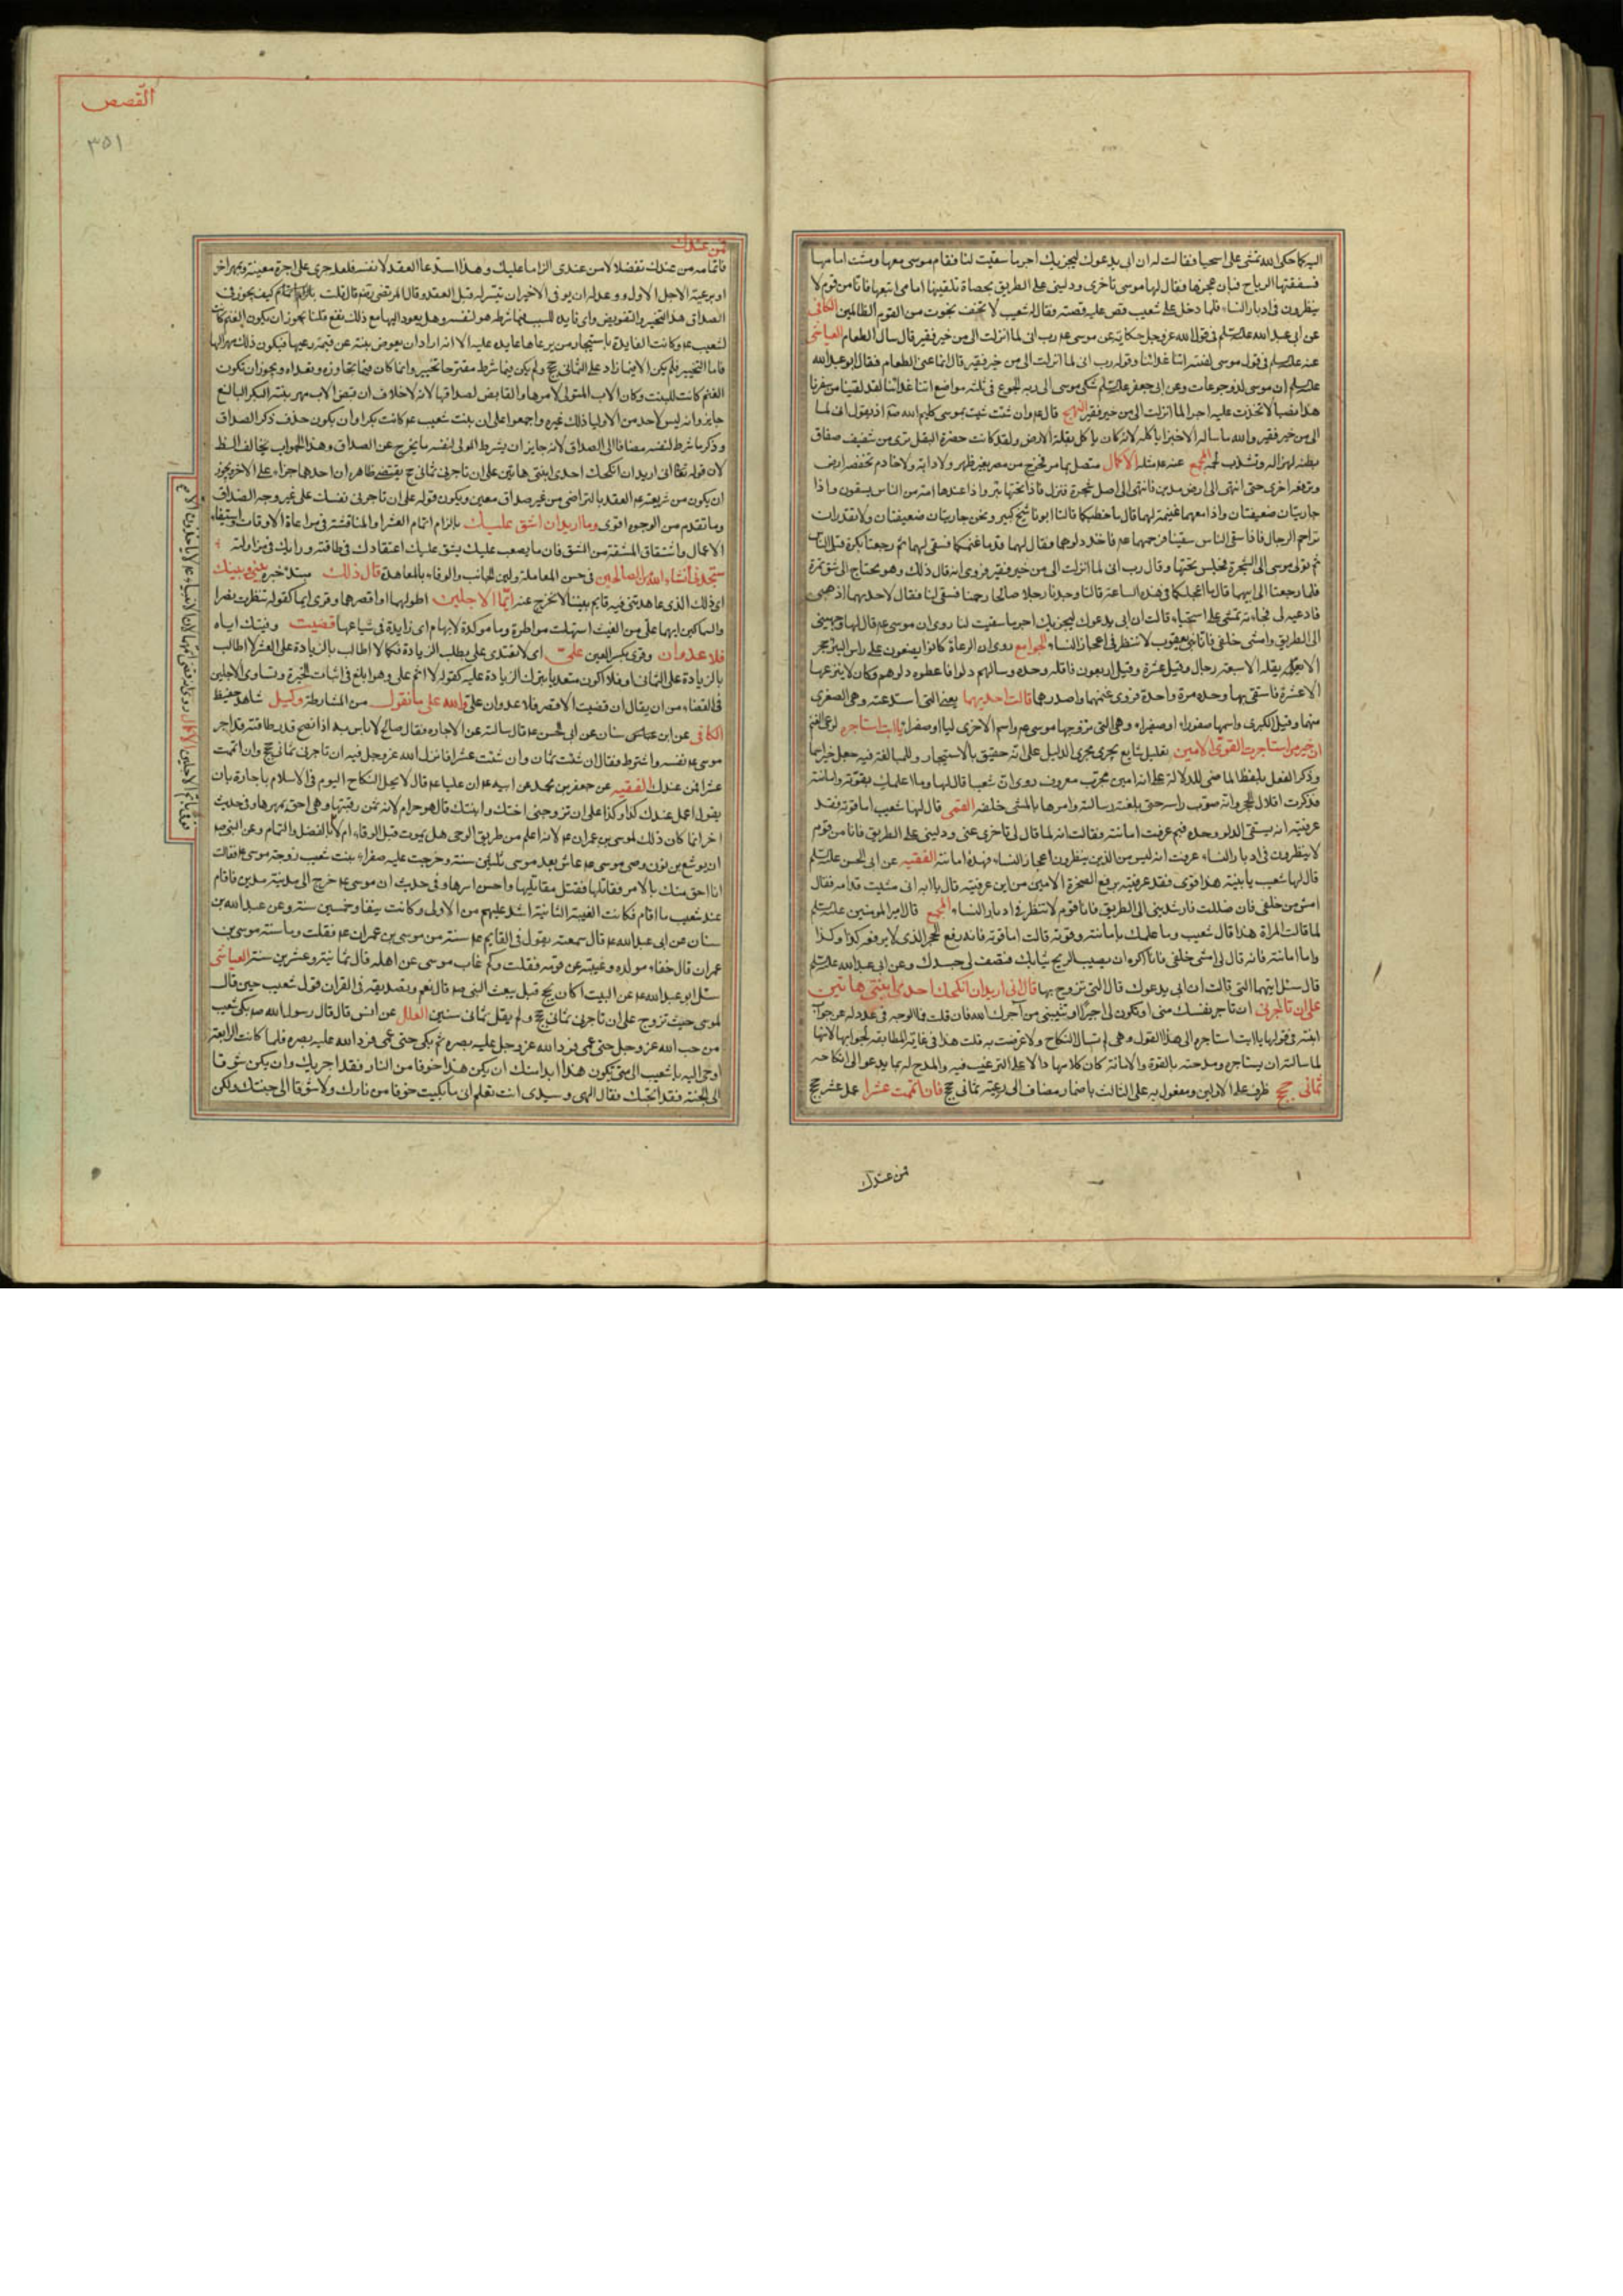 اليه كما حكى الله تمشى على استحيا فقالت له ان ابى يدعوك ليجزيك اجر ما سقيت لنا فقام موسى معها ومشت امامها
فسفقتها الرياح فبان عجزها فقال لها موسى تاخرى ودلينى على الطريق بحصاة تلقيها امامى اتبعها فانا من قوم لا
ينظرون فى ادبار النساء فلما دخل على شعيب قص عليه قصته فقال له شعيب لا تخف نجوت من القوم الظالمين الكافى
عن ابى عبد الله فى قول الله عز وجل حكاية عن موسى رب انى لما انزلت الى من خير فقير قال سال الطعام العياشى
عنه فى قول موسى لفتيه اتنا غدائنا وقوله رب انى لما انزلت الى من خير فقير قال انما عنى الطعام فقال ابو عبد الله
ان موسى لذو جوعات وعن ابى جعفر شكى موسى الى ربه الجوع فى ثلثه مواضع اتنا غدائنا لقد لقينا من سفرنا
هذا نصبا لاتخذت عليه اجرا لما انزلت الى من خير فقير النهج قال وان شئت ثنيت بموسى كليم الله اذ يقول انى لما
الى من خير فقير والله ما ساله الا خبزا ياكله لانه كان ياكل بقلة الارض ولقد كانت خضرة البقل ترى من شفيف صفاق
بطنه لهزاله وتشذب لحمه المجمع عنه مثله الاكمال متصل بما مر فخرج من مصر بغير ظهر ولا دابة ولا خادم تخفضه ارض
وترفعه اخرى حتى انتهى الى ارض مدين فانتهى الى اصل شجرة فنزل فاذا تحتها بئر واذا عندها امة من الناس يسقون واذا
جاريتان ضعيفتان واذا معهما غنيمة لهما قال ما خطبكما قالتا ابونا شيخ كبير ونحن جاريتان ضعيفتان ولا نقدر ان
نزاحم الرجال فاذا سقى الناس سقينا فرحمهما فاخذ دلوهما وقال لهما قدما غنمكما فسقى لهما ثم رجعتا بكرة قبل الناس
ثم تولى موسى الى الشجرة فجلس تحتها وقال رب انى لما انزلت الى من خير فقير فروى انه قال ذلك وهو محتاج الى شق تمرة
فلما رجعتا الى ابيهما قال ما اعجلكما فى هذه الساعة قالتا وجدنا رجلا صالحا رحمنا فسقى لنا فقال لاحديهما اذهبى
فادعيه لى فجاءته تمشى على استحياء قالت ان ابى يدعوك ليجزيك اجر ما سقيت لنا روى ان موسى قال لها وجهينى
الى الطريق وامشى خلفى فانا بنى يعقوب لا ننظر فى اعجاز النساء الجوامع روى ان الرعاة كانوا يضعون على راس البئر حجر
الا يقله الا سبعة رجال وقيل عشرة وقيل اربعون فاقله وحده وسالهم دلوا فاعطوه دلوهم وكان لا ينزعها
الا عشرة فاستقى بها وحده مرة واحدة فروى غنمهما واصدرهما قالت احديهما يعنى التى استدعته وهى الصغرى
منهما وقيل الكبرى واسمها صفوراء او صفراء وهى التى تزوجها موسى واسم الاخرى ليا او صفراء يا ابت استاجره لرعى الغنم
ان خير من استاجرت القوى الامين تعليل شايع يجرى مجرى الدليل على انه حقيق بالاستيجار وللمبالغة فيه جعل خير اسما
وذكر الفعل بلفظ الماضى للدلالة على انه امين مجرب معروف روى ان شعيبا قال لها وما اعلمك بقوته وامانته
فذكرت اقلال الحجر وانه صوب راسه حتى بلغته رسالته وامرها بالمشى خلفه القمى قال لها شعيب اما قوته فقد
عرفتيه انه يستقى الدلو وحده فبم عرفت امانته فقالت انه لما قال لى تاخرى عنى ودلينى على الطريق فانا من قوم
لا ينظرون فى ادبار النساء عرفت انه ليس من الذين ينظرون اعجاز النساء فهذه امانته الفقيه عن ابى الحسن
قال لها شعيب يا بنية هذا قوى فقد عرفتيه برفع الصخرة الامين من اين عرفتيه قال يا ابه انى مشيت قدامه فقال
امشى من خلفى فان ضللت فارشدينى الى الطريق فانا قوم لا ننظر فى ادبار النساء المجمع قال امير المومنين
لما قالت المراة هذا قال شعيب وما علمك بامانته وقوته قالت اما قوته فانه رفع الحجر الذى لا يرفعه كذا وكذا
واما امانته فانه قال لى امشى خلفى فانا اكره ان يصيب الريح ثيابك فتصف لى جسدك وعن ابى عبد الله
قال سئل ايتهما التى قالت ان ابى يدعوك قال التى تزوج بها قال انى اريد ان انكحك احدى ابنتى هاتين
على ان تاجرنى ان تاجر نفسك منى او تكون لى اجيرا او تثيبنى من آجرك الله فان قلت فما الوجه فى عدوله عن جواب
ابنته فى قولها يا ابت استاجره الى هذا القول وهى لم تسال النكاح ولا عرضت به قلت هذا فى غاية المطابقه لجوابها لانها
لما سالته ان يستاجره ومدحته بالقوة والامانة كان كلامها دالا على الترغيب فيه والمدح له بما يدعو الى انكاحه
ثمانى حجج ظرف على الاولين ومفعول به على الثالث باضمار مضاف الى رعية ثمانى حجج فان اتممت عشرا عمل عشر حجج
فمن عندك
القصص
٣٥١
فمن عندك
فاتمامه من عندك تفضلا لا من عندى الزاما عليك وهذا استدعاء العقد لا نفسه فلعله جرى على اجرة معينة وبمهر اخر
او برعية الاجل الاول ووعد له ان يوفى الاخير ان تيسر له قبل العقد وقال المرتضى رضه قال قلت كيف يجوز فى
الصداق هذا التخيير والتفويض واى فايده للبنت فيما شرطه هو لنفسه وهل يعود اليها مع ذلك نفع قلنا يجوز ان يكون الغنم كانت
لشعيب وكانت الفايدة باستيجار من يرعاها عايده عليه الا انه اراد ان يعوض بنته عن قيمة رعيها فيكون ذلك مهرا لها
فاما التخيير فلم يكن الا فيما زاد على الثمانى حجج ولم يكن فيما شرط مقترحا تخيير وانما كان فيما تجاوزه وتعداه ويجوز ان تكون
الغنم كانت للبنت وكان الاب المتولى لامرها والقابض لصداقها لانه لا خلاف ان قبض الاب مهر بنته البكر البالغ
جايز وانه ليس لاحد من الاوليا ذلك غيره واجمعوا على ان بنت شعيب كانت بكرا وان يكون حذف ذكر الصداق
وذكر ما شرط لنفسه مضافا الى الصداق لانه جايز ان يشرط الولى لنفسه ما يخرج عن الصداق وهذا الجواب يخالف الظ
لان قوله تعالى انى اريد ان انكحك احدى ابنتى هاتين على ان تاجرنى ثمانى حجج يقتضى ظاهره ان احدهما جزاء على الاخر ويجوز
ان يكون من شريعته العقد بالتراضى من غير صداق معين ويكون قوله على ان تاجرنى نفسك على غير وجه الصداق
وما تقدم من الوجوه اقوى وما اريد ان اشق عليك بالزام اتمام العشر او المناقشة فى مراعاة الاوقات واستيفاء
الاعمال واشتقاق المشقة من الشق فان ما يصعب عليك يشق عليك اعتقادك فى طاقته ورايك فى مزاولته
ستجدنى انشاء الله من الصالحين فى حسن المعاملة ولين الجانب والوفاء بالمعاهدة قال ذلك مبتدا خبره بينى وبينك
اى ذلك الذى عاهدتنى فيه قايم بيننا لا نخرج عنه ايما الاجلين اطولهما او اقصرهما وقرى ايما كقوله تنظرت نصرا
والسماكين ايهما على من الغيث استهلت مواطرة وما موكدة لابهام اى زايدة فى شياعها قضيت وفيتك اياه
فلا عدوان وقرى بكسر العين على اى لا تعتدى على بطلب الزيادة فكما لا اطالب بالزيادة على العشر لا اطالب
بالزيادة على الثمانى او فلا اكون متعديا بترك الزيادة عليه كقولك لا اثم على وهو ابلغ فى اثبات الخيرة وتساوى الاجلين
فى القضاء من ان يقال ان قضيت الاقصر فلا عدوان على والله على ما نقول من المشارطة وكيل شاهد حفيظ
الكافى عن ابن سنان عن ابى الحسن قال سالته عن الاجاره فقال صالح لا باس به اذا نصح قدر طاقته قد اجر
موسى نفسه واشترط فقال ان شئت ثمان وان شئت عشرا فانزل الله عز وجل فيه ان تاجرنى ثمانى حجج وان اتممت
عشرا فمن عندك الفقيه عن جعفر بن محمد عن ابيه ان عليا قال لا يحل النكاح اليوم فى الاسلام باجارة بان
يقول اعمل عندك كذا وكذا على ان تزوجنى اختك وابنتك قال هو حرام لانه ثمن رقبتها وهى احق بمهرها وفى حديث
اخر انما كان ذلك لموسى بن عمران لانه اعلم من طريق الوحى هل يموت قبل الوفاء ام لا بالفضل والتمام وعن النبى
ان يوشع بن نون وصى موسى عاش بعد موسى ثلثين سنة وخرجت عليه صفراء بنت شعيب زوجة موسى فقالت
انا احق منك بالامر فقاتلها فقتل مقاتليها واحسن اسرها وفى حديث ان موسى خرج الى مدينة مدين فاقام
عند شعيب ما اقام فكانت الغيبة الثانية اشد عليهم من الاولى وكانت نيفا وخمسين سنة وعن عبد الله بن
سنان عن ابى عبد الله قال سمعته يقول فى القايم سنة من موسى بن عمران فقلت وما سنة موسى بن
عمران قال خفاء مولده وغيبته عن قومه فقلت وكم غاب موسى عن اهله قال ثمانية وعشرين سنة العياشى
سئل ابو عبد الله عن البيت اكان يحج قبل يبعث النبى قال نعم وتصديقه فى القران قول شعيب حين قال
لموسى حيث تزوج على ان تاجرنى ثمانى حجج ولم يقل ثمانى سنين العلل عن انس قال قال رسول الله بكى شعيب
من حب الله عز وجل حتى عمى فرد الله عز وجل عليه بصره ثم بكى حتى عمى فرد الله عليه بصره فلما كانت الرابعة
اوحى اليه يا شعيب الى متى يكون هذا ابدا منك ان يكن هذا خوفا من النار فقد اجرتك وان يكن شوقا
الى الجنة فقد ابحتك فقال الهى وسيدى انت تعلم انى ما بكيت خوفا من نارك ولا شوقا الى جنتك ولكن